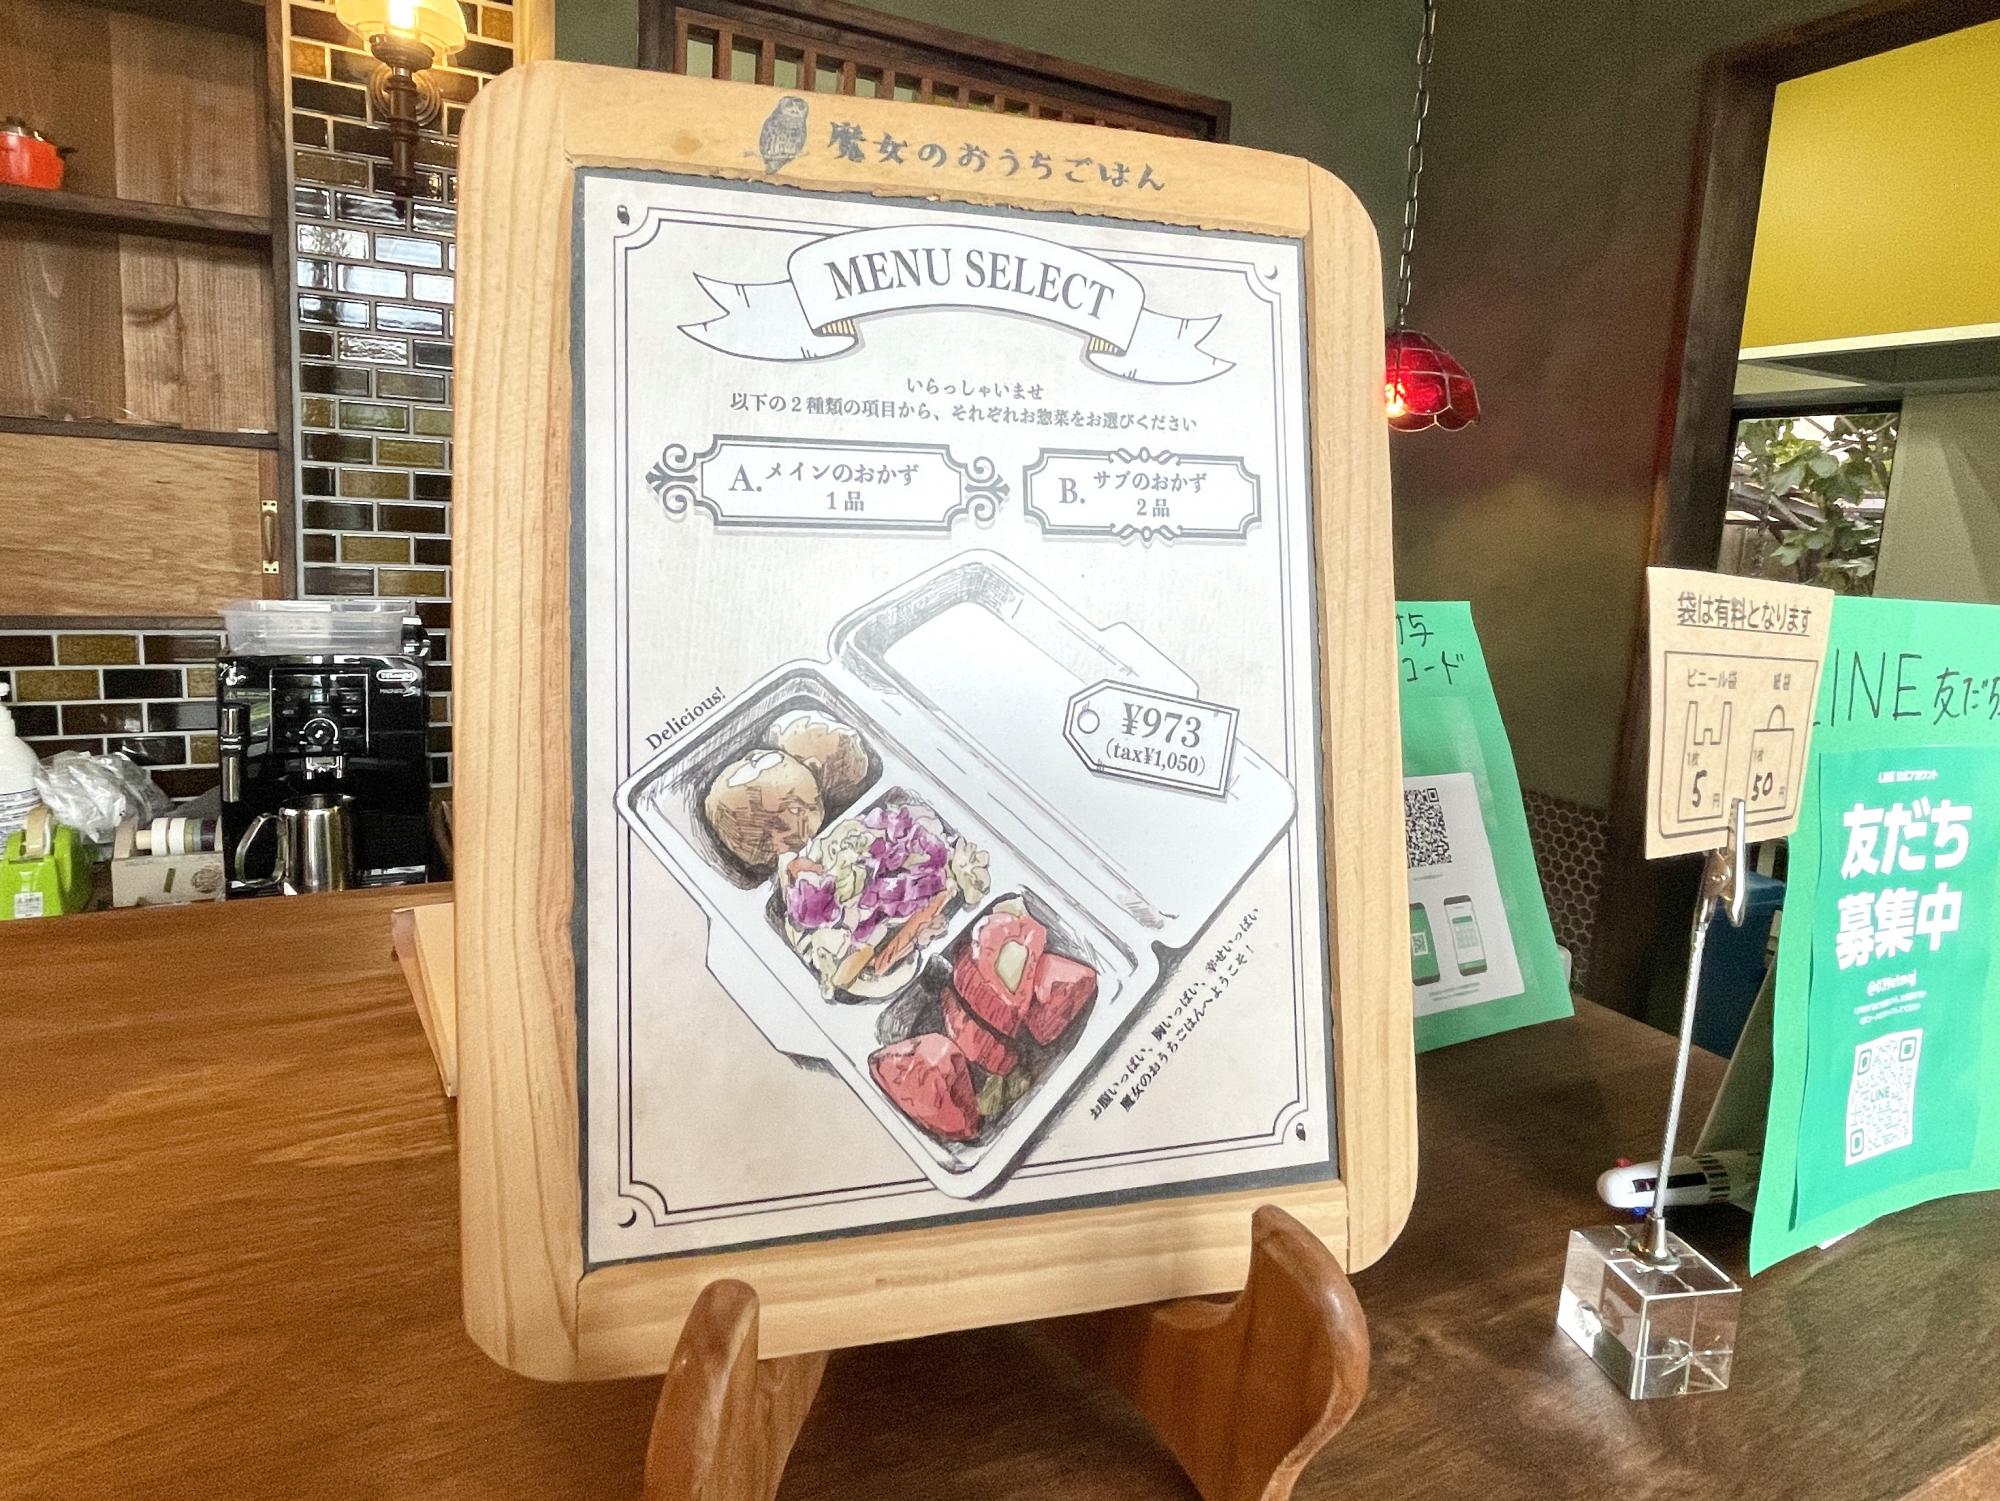 魔女のおうちごはん
MENU SELECT
いらっしゃいませ
以下の2種類の項目から、それぞれお惣菜をお選びください
A. メインのおかず
1品
B. サブのおかず
2品
Delicious!
¥973
(tax¥1,050)
お腹いっぱい、胸いっぱい、幸せいっぱい
魔女のおうちごはんへようこそ!
DeLonghi
コード
袋は有料となります
ビニール袋 紙袋
1枚 5円
1枚 50円
LINE 友だち
LINE 公式アカウント
友だち
募集中
LINE